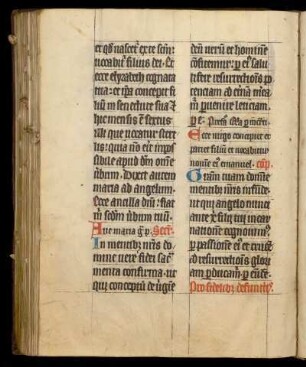 et qd nascet ex te scm
vocabit filius dei. Et
ecce elyzabeth cognata
tua: et ipa concepit fi
lium in senectute sua et
hic mensis est sextus
illi que vocatur steri
lis: quia non erit impos
sibile apud dm omne
verbum. Dixit autem
maria ad angelum.
Ecce ancilla dni: fiat
m scdm verbum tuu.
Ave maria
In mentibus nris do
mine vere fidei sac
menta confirma. ut
qui conceptu de virgine
deum veru et hominem
confitemur: p ei salu
tifere resurrectionis po
tenciam ad eterna mea
m pvenire leticiam.
Ecce virgo concipiet et
pariet filium et vocabitur
nomen ei emanuel.
Gram tuam domine
mentibus nris infunde.
ut qui angelo nunci
ante xpi filii tui incar
nationem cognovimus:
p passione ei et cruce
ad resurrectionis glori
am pducamur. p eude.
Pro fidelibus defunctis